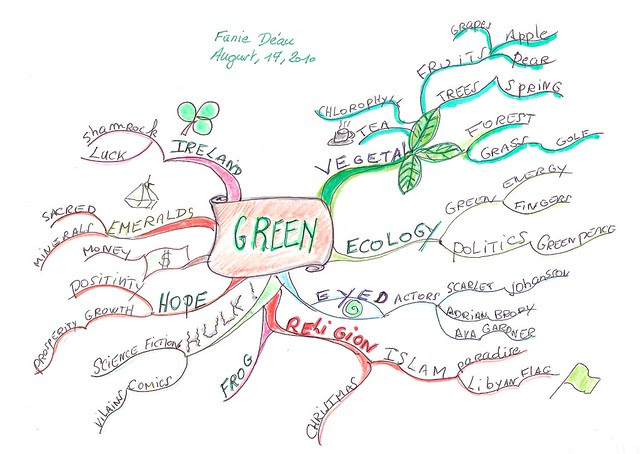 Fanie Déau
August, 17, 2010
GREEN
IRELAND
Shamrock
LUCK
EMERALDS
SACRED
MINERALS
MONEY
$
HOPE
POSITIVITY
GROWTH
PROSPERITY
HULK!
SCIENCE FICTION
COMICS
VILAINS
FROG
RELIGION
CHRISTMAS
ISLAM
paradise
LibYAN FLAG
EYED
ACTORS
SCARLET Johansson
ADRIAN BRODY
AVA GARDNER
ECOLOGY
GREEN
ENERGY
FINGERS
POLITICS
GREENPEACE
VEGETAL
CHLOROPHYL
TEA
FRUITS
GRAPES
Apple
Pear
TREES
SPRING
FOREST
GRASS
GOLF